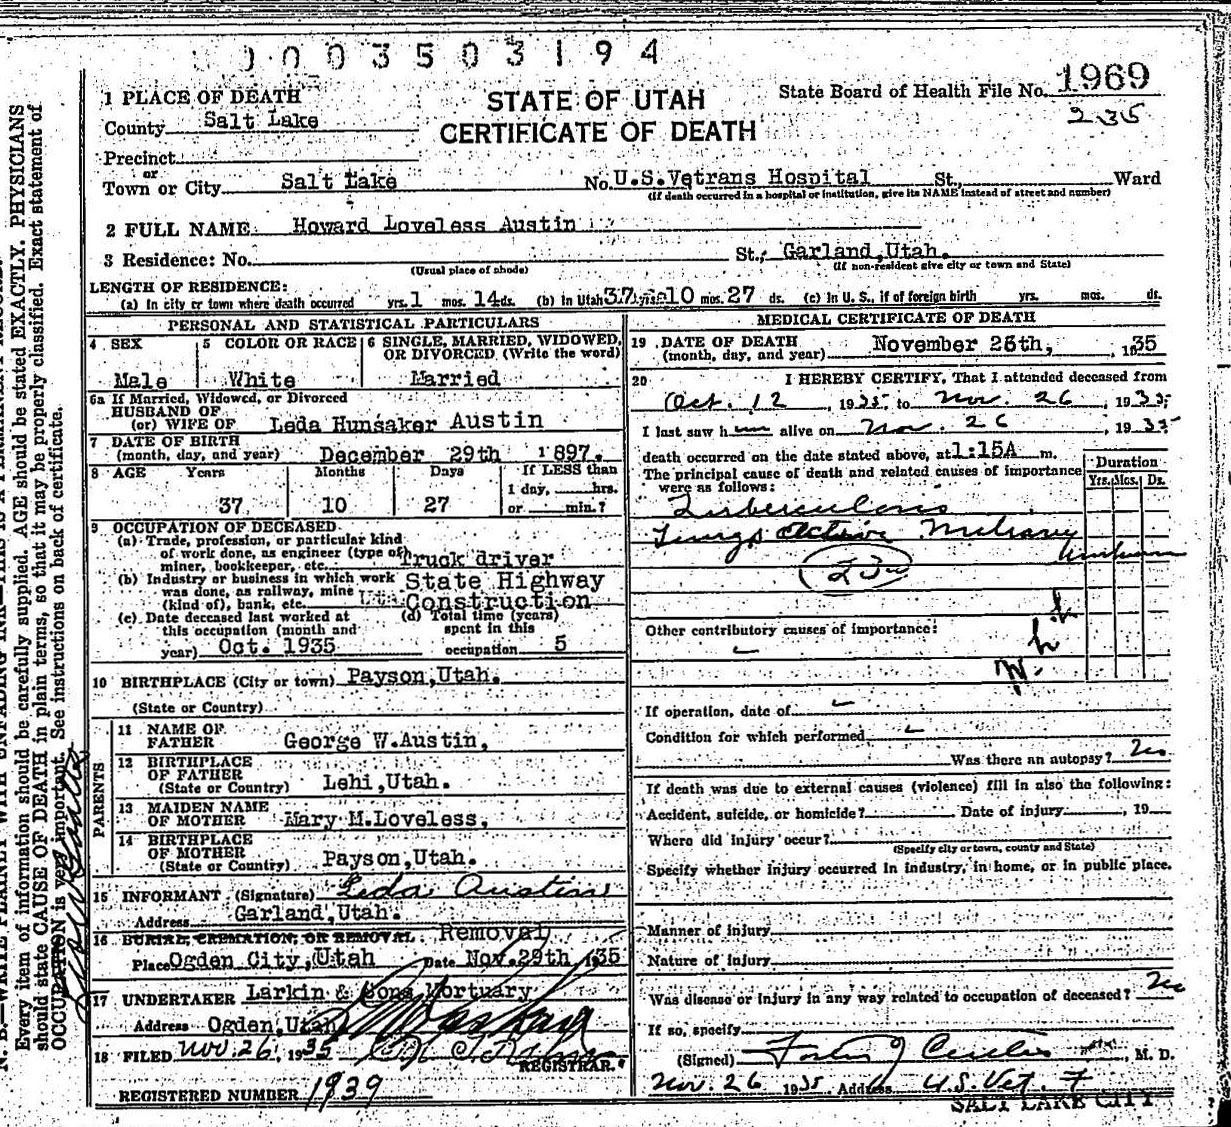 0003503194
1969
State Board of Health File No.
235
STATE OF UTAH
CERTIFICATE OF DEATH
1 PLACE OF DEATH
County Salt Lake
Precinct
or
Town or City Salt Lake No. U.S.Vetrans Hospital St., Ward
(If death occurred in a hospital or institution, give its NAME instead of street and number)
2 FULL NAME Howard Loveless Austin
3 Residence: No. St.; Garland,Utah.
(Usual place of abode) (If non-resident give city or town and State)
LENGTH OF RESIDENCE:
(a) In city or town where death occurred yrs. 1 mos. 14 ds. (b) in Utah 37 yrs. 10 mos. 27 ds. (c) In U. S., if of foreign birth yrs. mos. ds.
PERSONAL AND STATISTICAL PARTICULARS
4 SEX
Male
5 COLOR OR RACE
White
6 SINGLE, MARRIED, WIDOWED, OR DIVORCED (Write the word)
Married
6a If Married, Widowed, or Divorced
HUSBAND OF
(or) WIFE OF Leda Hunsaker Austin
7 DATE OF BIRTH
(month, day, and year) December 29th 1897.
8 AGE Years Months Days If LESS than
1 day, hrs.
37 10 27 or min.?
9 OCCUPATION OF DECEASED
(a) Trade, profession, or particular kind
of work done, as engineer (type of)
miner, bookkeeper, etc. Truck driver
(b) Industry or business in which work State Highway
was done, as railway, mine
(kind of), bank, etc. Construction
(c) Date deceased last worked at (d) Total time (years)
this occupation (month and spent in this
year) Oct. 1935 occupation 5
10 BIRTHPLACE (City or town) Payson,Utah.
(State or Country)
PARENTS
11 NAME OF
FATHER George W.Austin,
12 BIRTHPLACE
OF FATHER
(State or Country) Lehi,Utah.
13 MAIDEN NAME
OF MOTHER Mary M.Loveless,
14 BIRTHPLACE
OF MOTHER
(State or Country) Payson,Utah.
15 INFORMANT (Signature) Leda Austin
Address Garland,Utah.
16 BURIAL, CREMATION, OR REMOVAL Removal
Place Ogden City,Utah Date Nov.29th 1935
17 UNDERTAKER Larkin & Sons Mortuary
Address Ogden,Utah
18 FILED Nov. 26, 1935
REGISTRAR.
REGISTERED NUMBER 1939
MEDICAL CERTIFICATE OF DEATH
19 DATE OF DEATH
(month, day, and year) November 26th, 1935
20 I HEREBY CERTIFY, That I attended deceased from
Oct. 12, 1935 to Nov. 26, 1935
I last saw him alive on Nov. 26, 1935
death occurred on the date stated above, at 1:15A m.
The principal cause of death and related causes of importance
were as follows:
Duration
Yrs. Mos. Ds.
Tuberculosis
Lungs active Miliary
Unknown
23
Other contributory causes of importance:
If operation, date of
Condition for which performed
Was there an autopsy? No
If death was due to external causes (violence) fill in also the following:
Accident, suicide, or homicide? Date of injury , 19
Where did injury occur?
(Specify city or town, county and State)
Specify whether injury occurred in industry, in home, or in public place.
Manner of injury
Nature of injury
Was disease or injury in any way related to occupation of deceased? No
If so, specify
(Signed) , M. D.
Nov. 26 1935 Address U.S. Vet.
SALT LAKE CITY
Every item of information should be carefully supplied. AGE should be stated EXACTLY. PHYSICIANS
should state CAUSE OF DEATH in plain terms, so that it may be properly classified. Exact statement of
OCCUPATION is very important. See instructions on back of certificate.